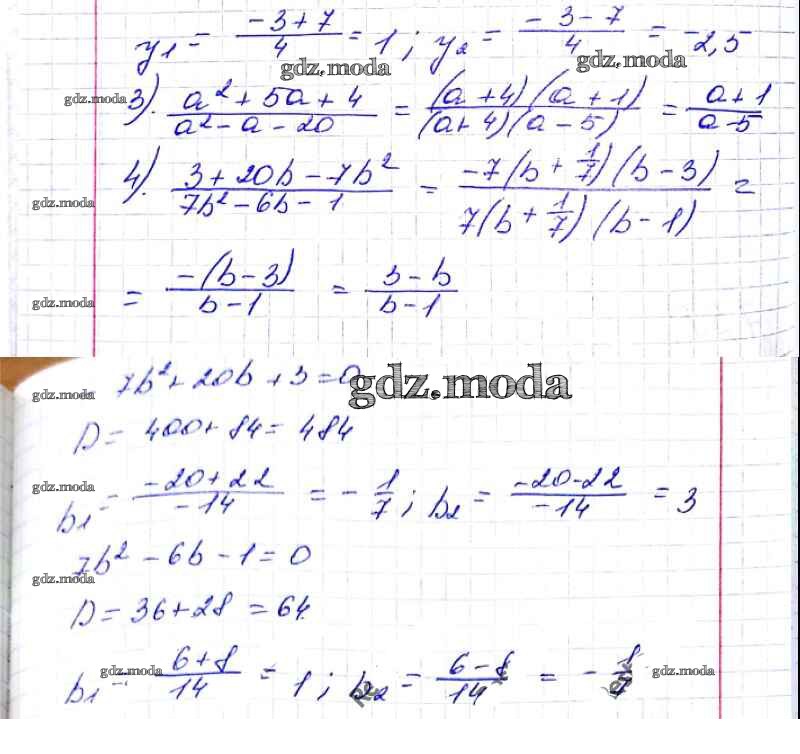 y₁ = (-3+7)/4 = 1; y₂ = (-3-7)/4 = -2,5
gdz.moda gdz.moda
gdz.moda 3). (a²+5a+4)/(a²-a-20) = ((a+4)(a+1))/((a+4)(a-5)) = (a+1)/(a-5)
gdz.moda 4). (3+20b-7b²)/(7b²-6b-1) = (-7(b+1/7)(b-3))/(7(b+1/7)(b-1)) =
gdz.moda = (-(b-3))/(b-1) = (3-b)/(b-1)
gdz.moda 7b²+20b+3=0 gdz.moda
D = 400+84 = 484
gdz.moda b₁ = (-20+22)/(-14) = -1/7; b₂ = (-20-22)/(-14) = 3
gdz.moda 7b²-6b-1=0
gdz.moda D = 36+28 = 64
b₁ = (6+8)/14 = 1; b₂ = (6-8)/14 = -1/7
gdz.moda gdz.moda